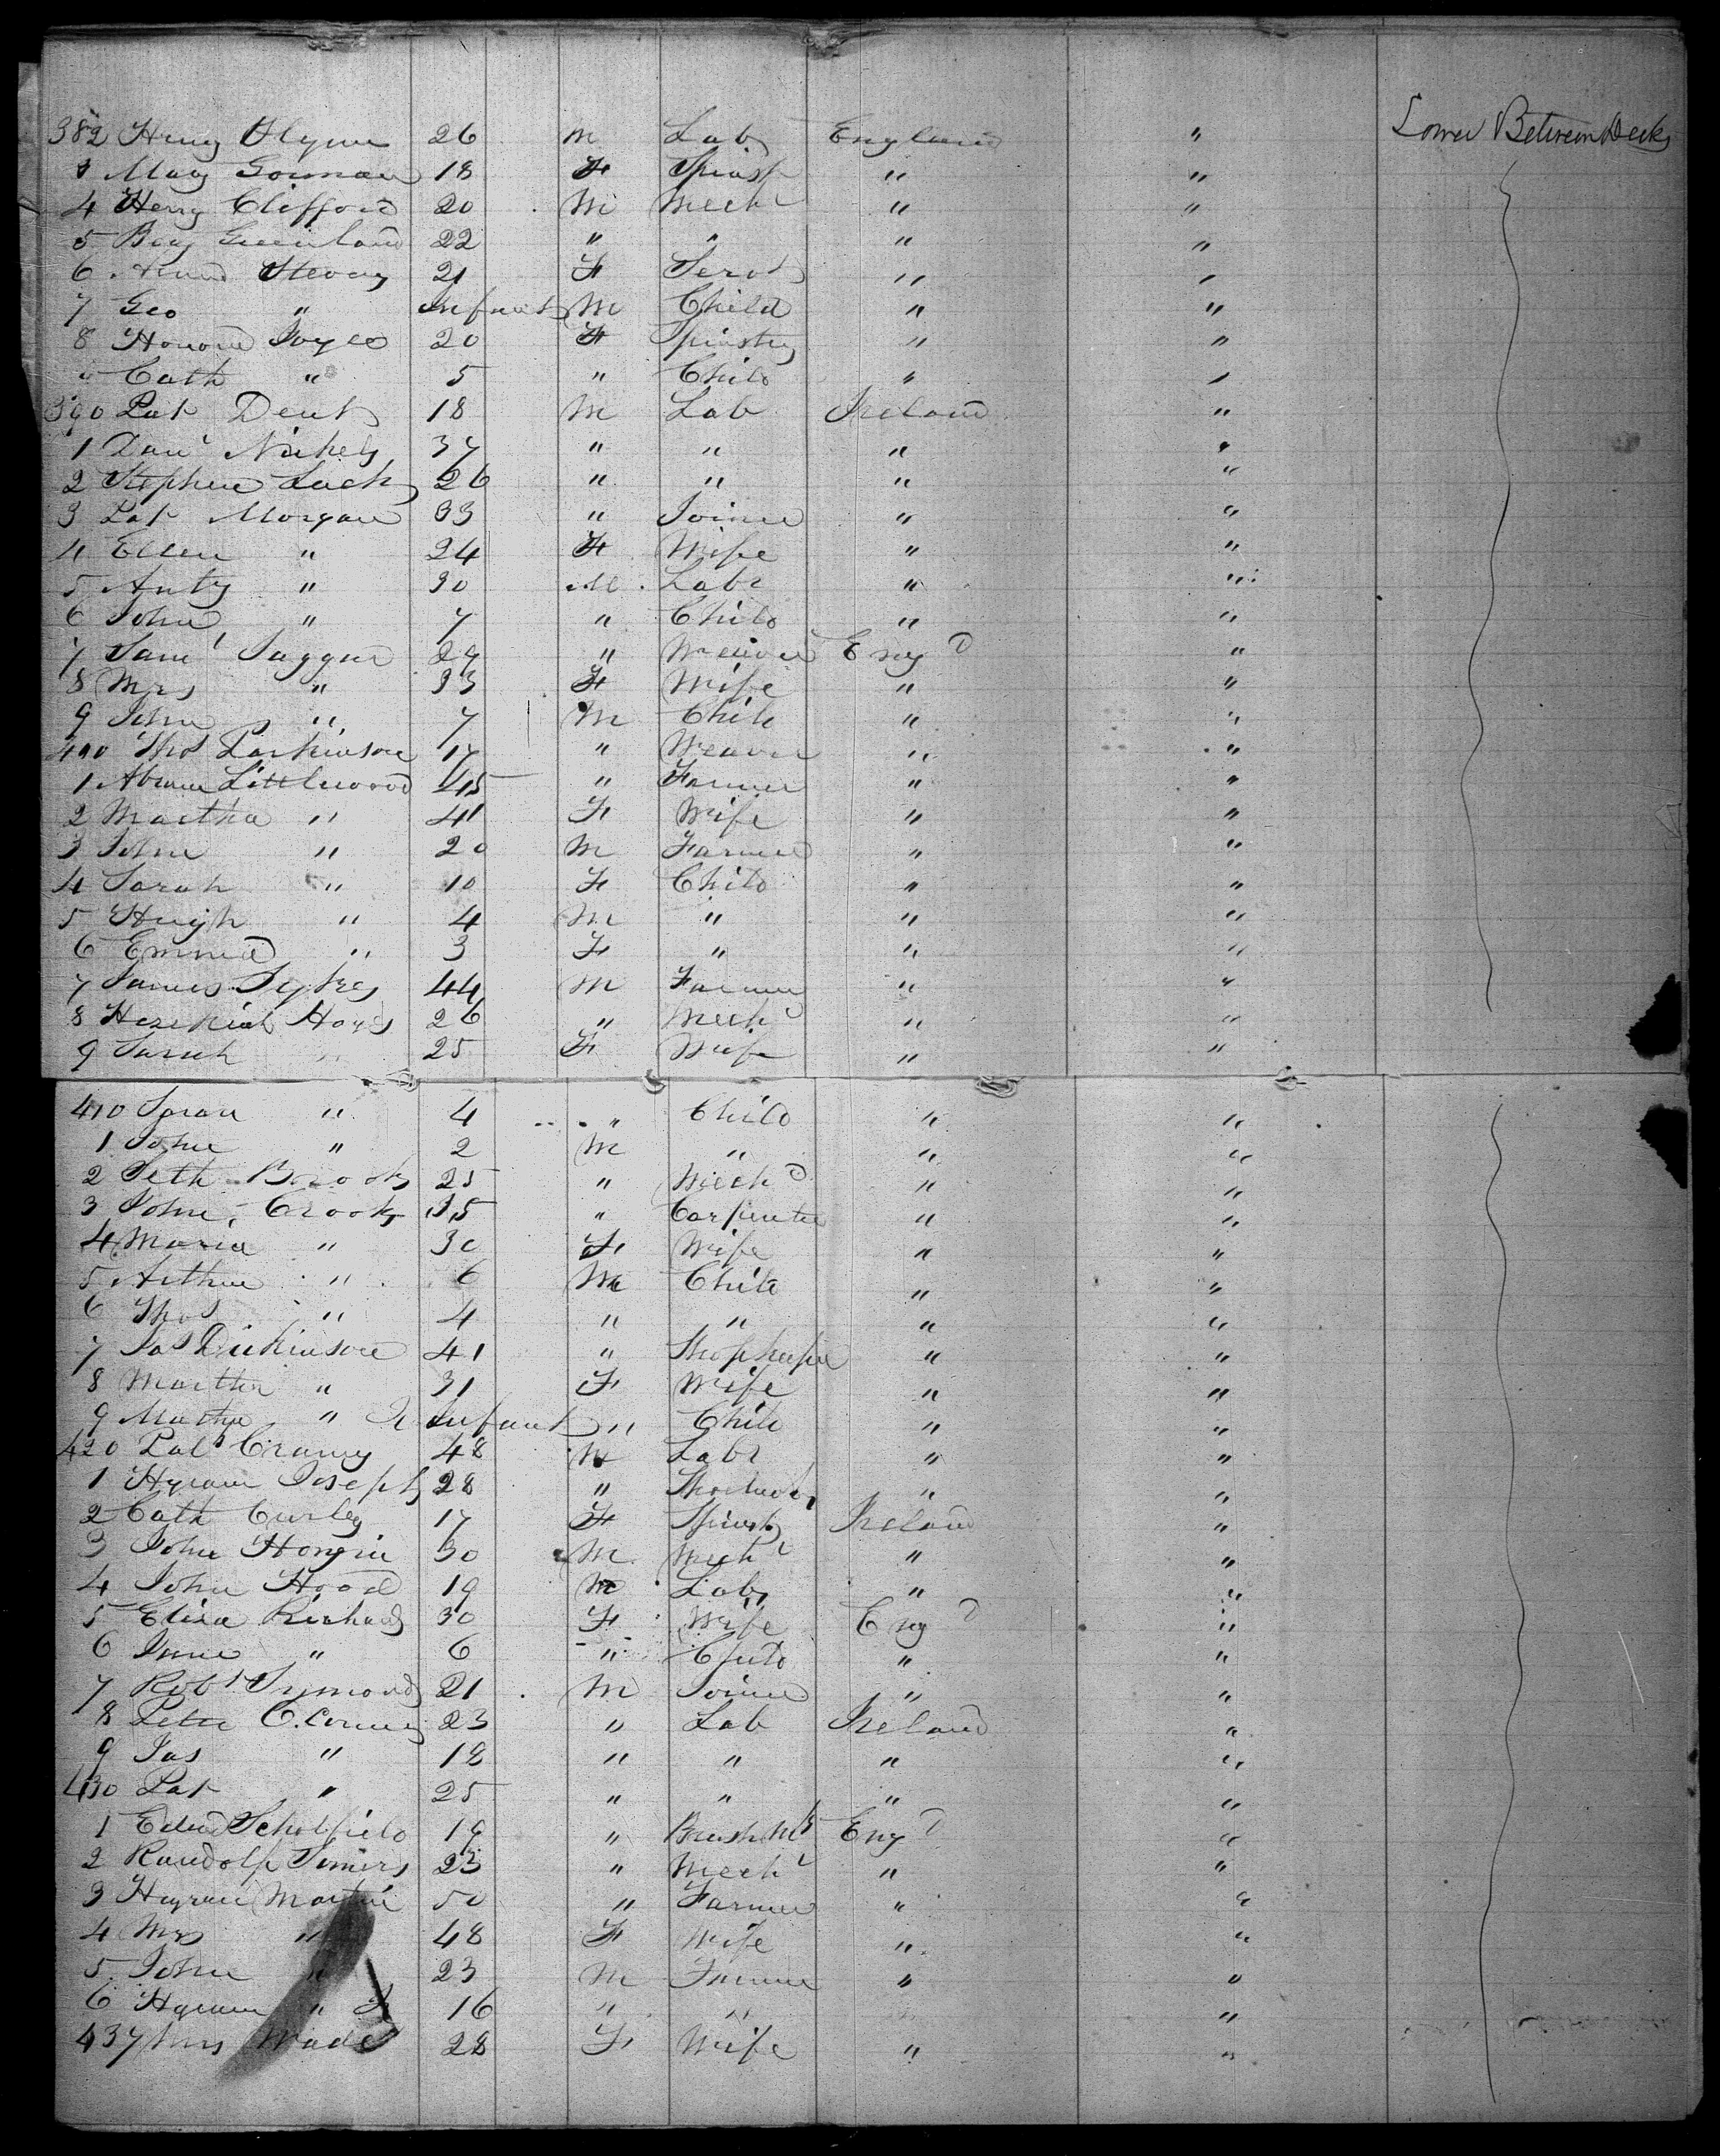 382 Henry Glynn 26 M Lab England " Lower Between Decks
3 Mary Gorman 18 F Spinst " "
4 Henry Clifford 20 M Mech " "
5 Benj Greenland 22 " " " "
6 Stevens 21 F Servt " "
7 Geo " Infant M Child " "
8 Honora Joyce 20 F Spinster " "
9 Cath " 5 " Child " "
390 Pat Dent 18 M Lab Ireland "
1 Danl 37 " " " "
2 Stephen Lack 26 " " " "
3 Pat Morgan 33 " Joiner " "
4 Ellen " 24 F Wife " "
5 Anty " 30 M Labr " "
6 John " 7 " Child " "
7 Saml Jaggar 29 " Weaver Engd "
8 Mrs " 33 F Wife " "
9 John " 7 M Child " "
400 Thos Parkinson 17 " Weaver " "
1 Abram Littlewood 45 " Farmer " "
2 Martha " 41 F Wife " "
3 John " 20 M Farmer " "
4 Sarah " 10 F Child " "
5 Hugh " 4 M " " "
6 Emma " 3 F " " "
7 James Sykes 44 M Farmer " "
8 Hezekiah Hoyes 26 " Mech " "
9 Sarah " 25 F Wife " "
410 Sarah " 4 " Child " "
1 John " 2 M " " "
2 Seth Brook 25 " Mech " "
3 John Crook 35 " Carpenter " "
4 Maria " 30 F Wife " "
5 Arthur " 6 M Child " "
6 Thos " 4 " " " "
7 Jas Dickinson 41 " Shopkeeper " "
8 Martha " 31 F Wife " "
9 Martha " Jr Infant " Child " "
420 Patk 48 M Labr " "
1 Hyram Joseph 28 " " "
2 Cath Curley 17 F Spinst Ireland "
3 John 30 M Mech " "
4 John Hood 19 M Lab " "
5 Eliza Richards 30 F Wife Engd "
6 " 6 " Child " "
7 Robt Symonds 21 M Joiner " "
8 Peter 23 " Lab Ireland "
9 Jas " 18 " " " "
430 Pat " 25 " " " "
1 Edwd Scholfield 19 " Brush Mkr Engd "
2 Randolph Simers 23 " Mech " "
3 Hyram Martin 50 " Farmer " "
4 Mrs " 48 F Wife " "
5 John " 23 M Farmer " "
6 Hyram " Jr 16 " " "
437 Mrs Wade 28 F Wife " "